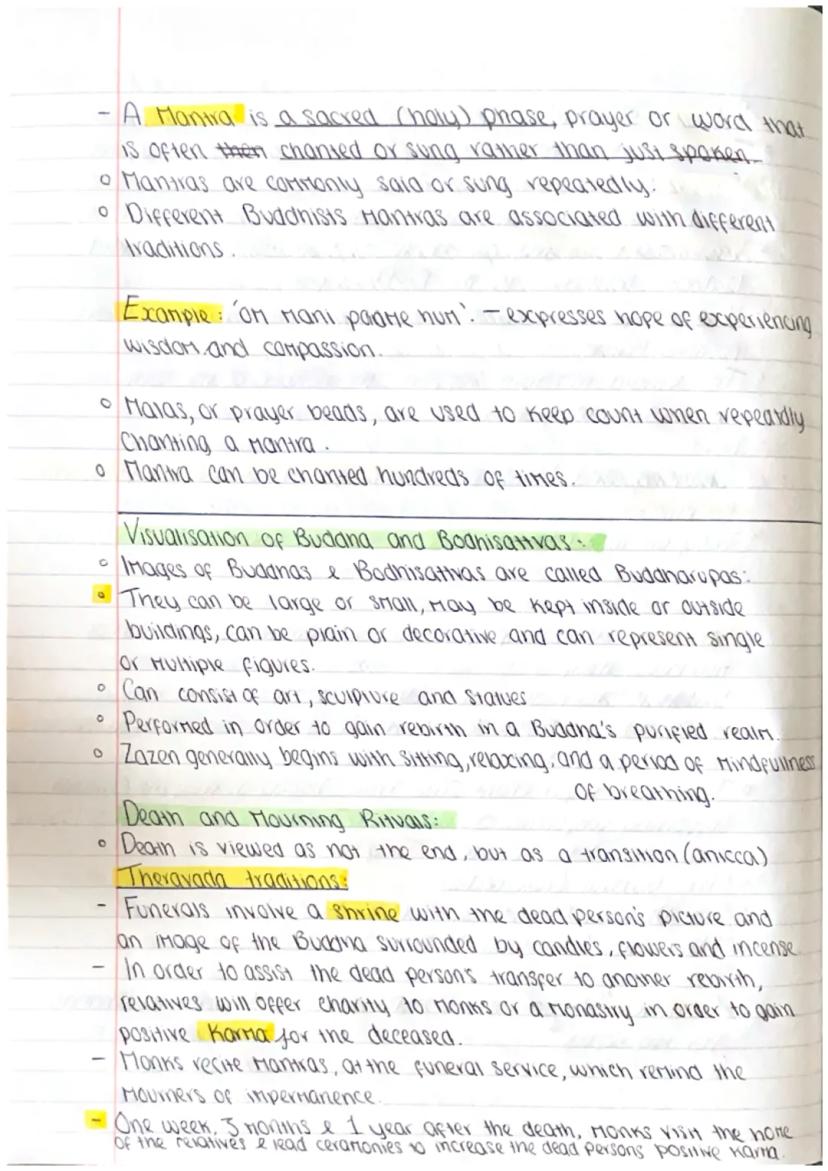 - A Mantra is a sacred (holy) phase, prayer or word that
is often then chanted or sung rather than just spoken.
o Mantras are commonly said or sung repeatedly.
o Different Buddhists Mantras are associated with different
traditions.
Example: 'OM Mani padme hum'. - expresses hope of experiencing
wisdom and compassion.
o Malas, or prayer beads, are used to keep count when repeatdly
chanting a mantra.
o Mantra can be chanted hundreds of times.
Visualisation of Buddha and Bodhisattvas:
o Images of Buddhas & Bodhisattvas are called Buddharupas:
o They can be large or small, may be kept inside or outside
buildings, can be plain or decorative and can represent single
or multiple figures.
o Can consist of art, sculpture and statues
o Performed in order to gain rebirth in a Buddha's purified realm.
o Zazen generally begins with sitting, relaxing, and a period of mindfullness
of breathing.
Death and Mourning Rituals:
o Death is viewed as not the end, but as a transition (anicca)
Theravada traditions:
- Funerals involve a shrine with the dead person's picture and
an image of the Buddha surrounded by candles, flowers and incense.
- In order to assist the dead person's transfer to another rebirth,
relatives will offer charity to monks or a monastry in order to gain
positive Karma for the deceased.
- Monks recite mantras, at the funeral service, which remind the
mourners of impermanence.
- One week, 3 months & 1 year after the death, monks visit the home
of the relatives & lead ceramonies to increase the dead persons positive karma.